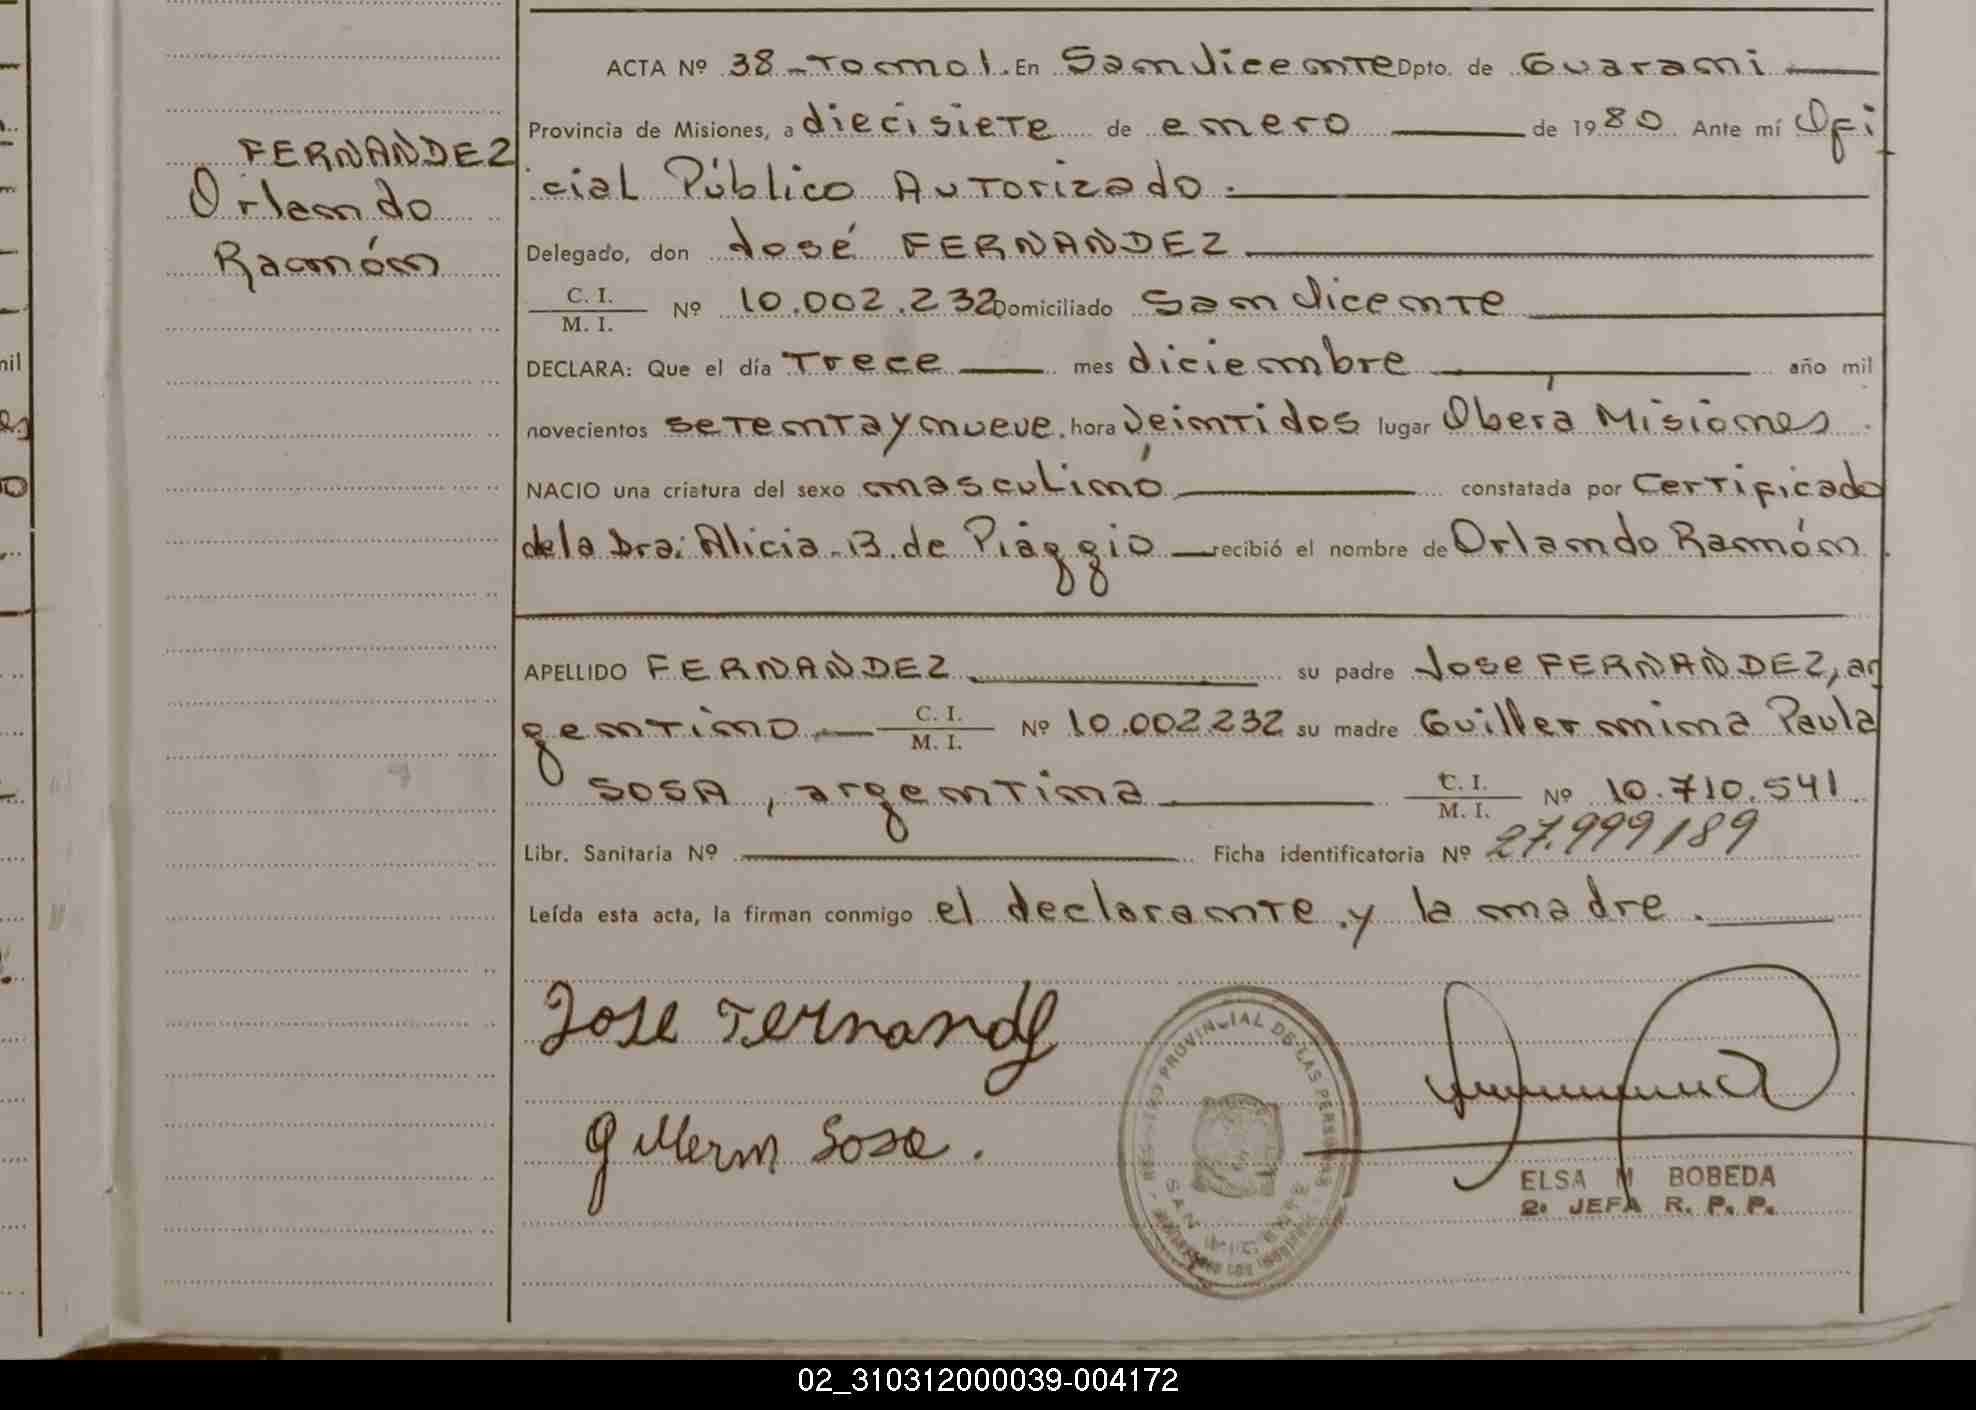 FERNANDEZ
Orlando
Ramón
ACTA Nº 38 - Tomo I. En San Vicente Dpto. de Guarani
Provincia de Misiones, a diecisiete de enero de 1980 Ante mí Ofi
cial Público Autorizado.
Delegado, don José FERNANDEZ
C. I.
M. I. Nº 10.002.232 Domiciliado San Vicente
DECLARA: Que el día Trece mes diciembre año mil
novecientos setenta y nueve. hora veintidos lugar Oberá Misiones
NACIO una criatura del sexo masculino constatada por Certificado
de la Dra: Alicia B. de Piaggio recibió el nombre de Orlando Ramón.
APELLIDO FERNANDEZ su padre Jose FERNANDEZ, ar
gentino C. I.
M. I. Nº 10.002.232 su madre Guillermina Paula
SOSA, argentina C. I.
M. I. Nº 10.710.541
Libr. Sanitaria Nº Ficha identificatoria Nº 27.999189
Leída esta acta, la firman conmigo el declarante y la madre.
Jose Fernandez
Gillerm Sosa.
REGISTRO PROVINCIAL DE LAS PERSONAS
SAN VICENTE
ELSA M BOBEDA
2º JEFA R. P. P.
nil
02_310312000039-004172